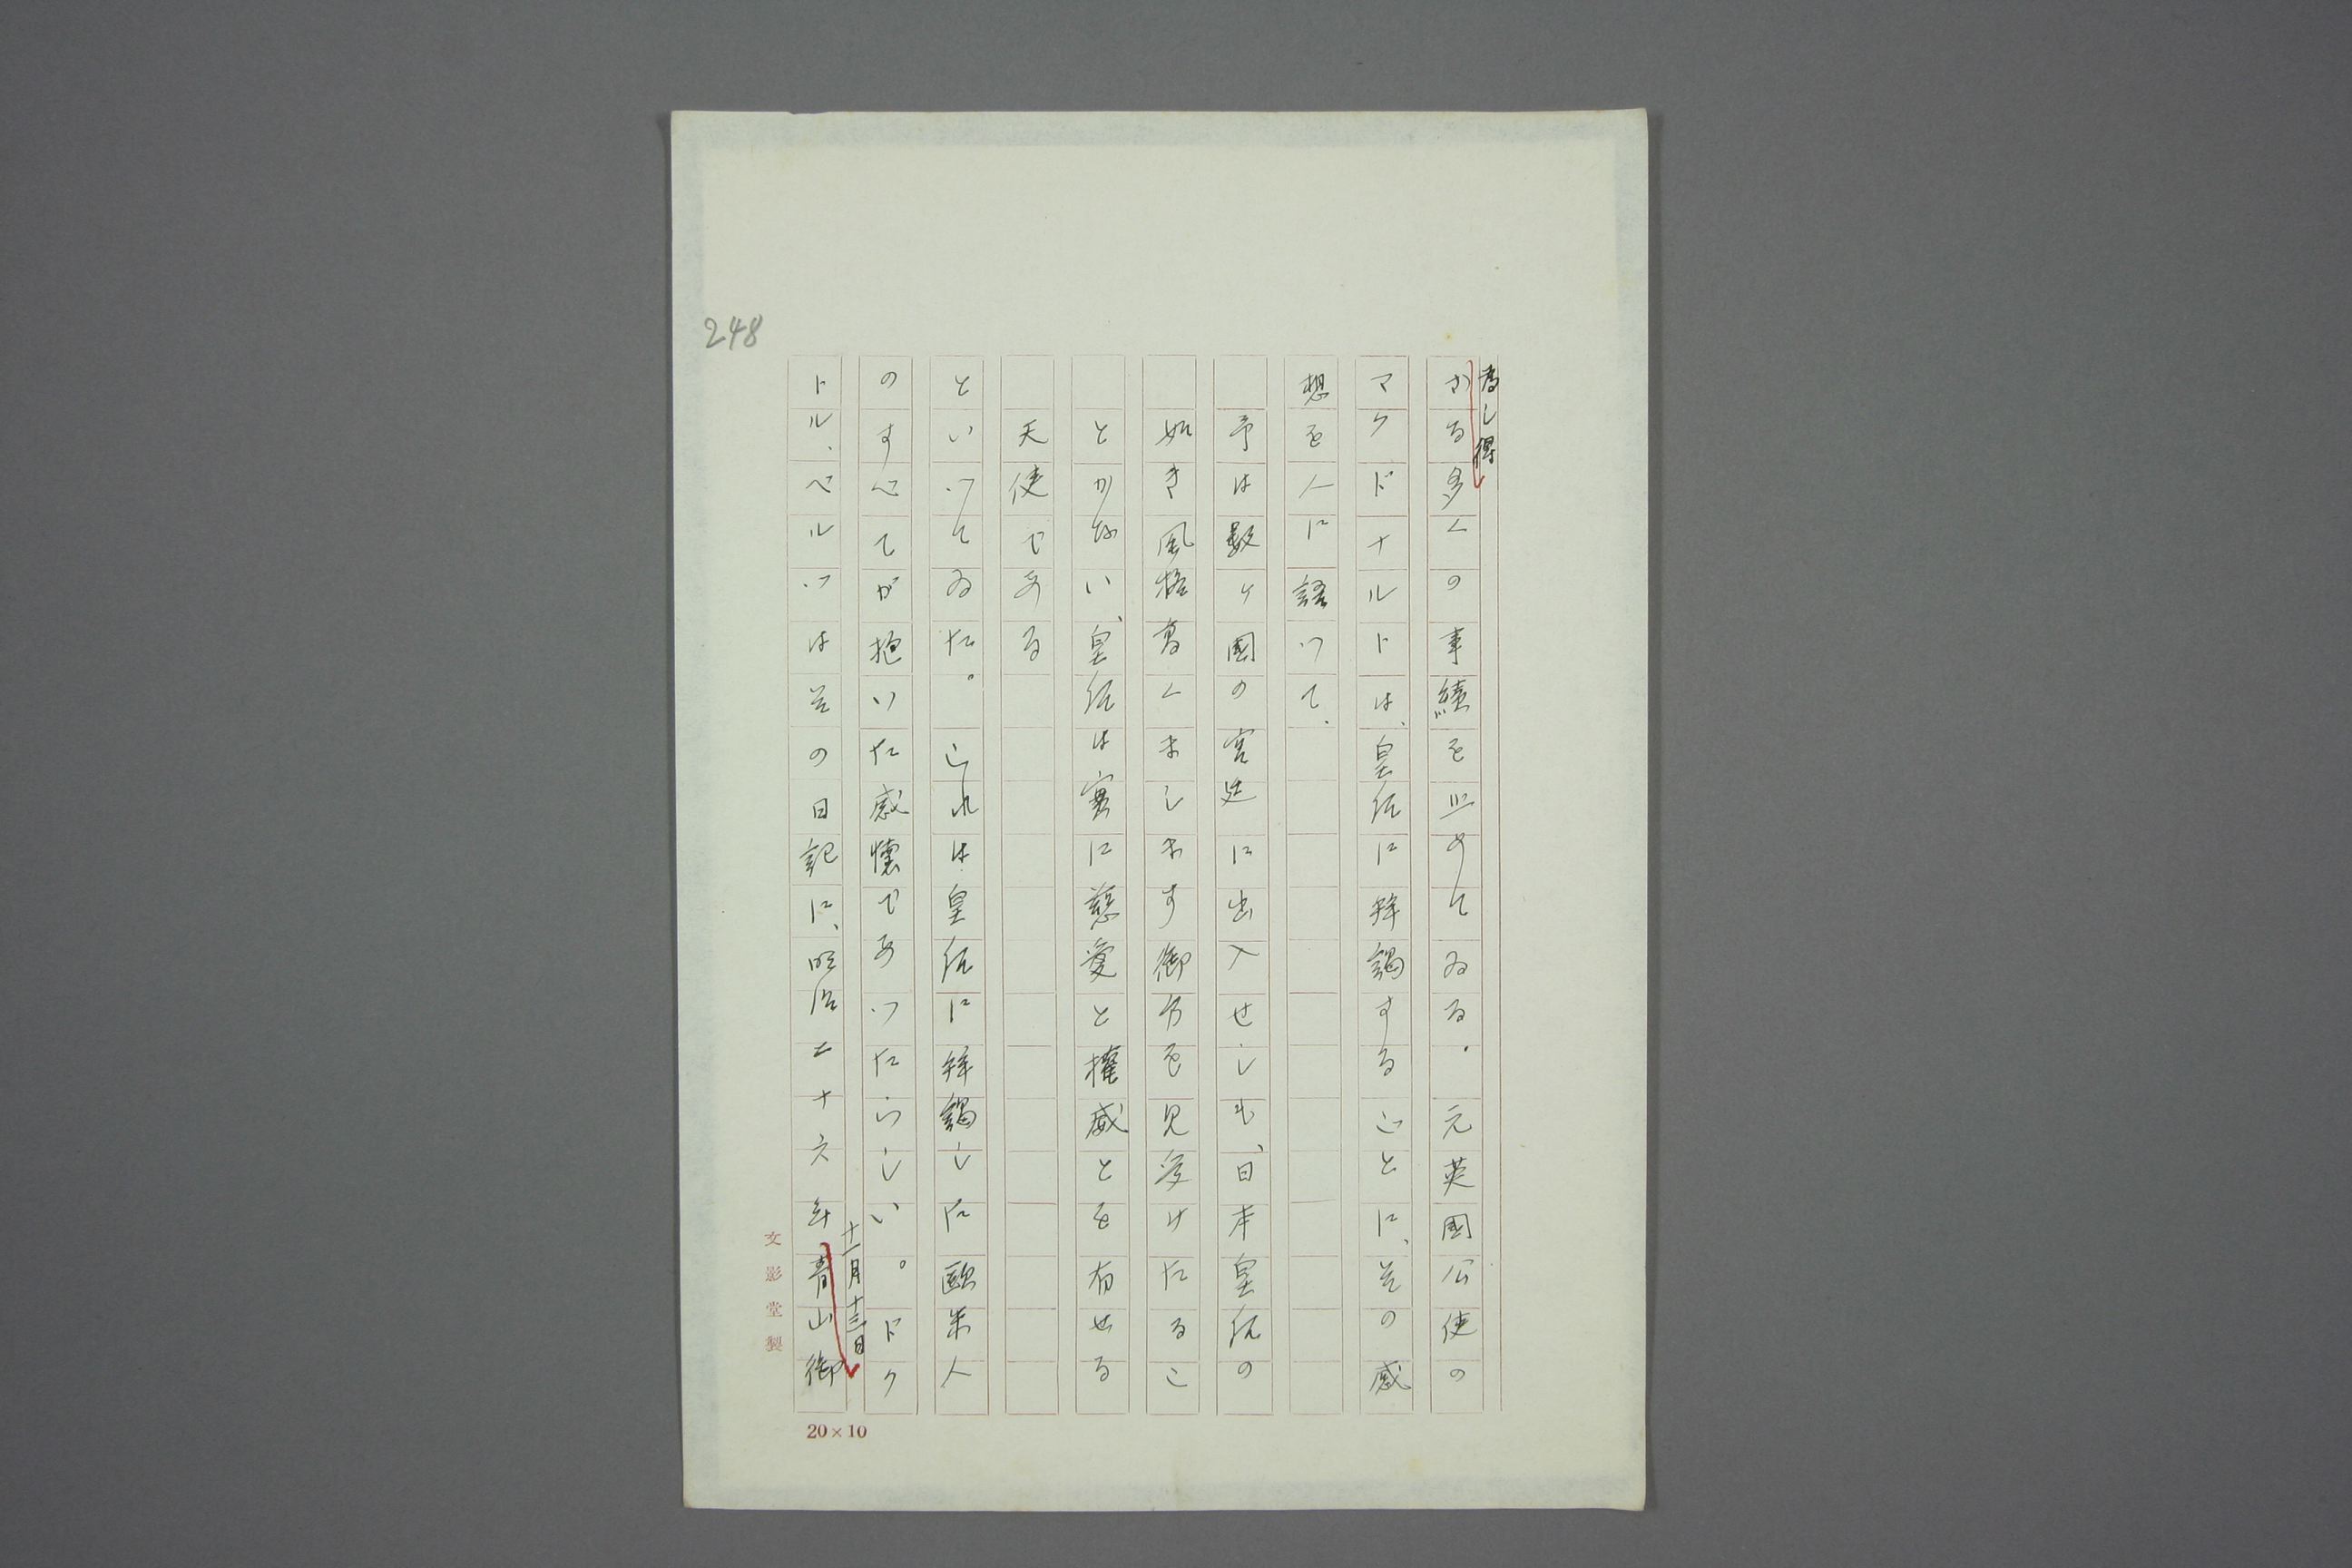 為し得
ざる多くの事績を止めてゐる。元英國公使の
マクドナルドは、皇后に拜謁することに、その感
想を人に語つて、
予は數ヶ國の宮廷に出入せしも、日本皇后の
如き風格高くまします御方を見受けたるこ
とがない、皇后は實に慈愛と權威とを有せる
天使である
といつてゐた。これは皇后に拜謁した歐米人
のすべてが抱いた感懷であつたらしい。ドク
十一月十三日
トル、ベルツはその日記に、明治二十六年青山御
248
文影堂製
20×10